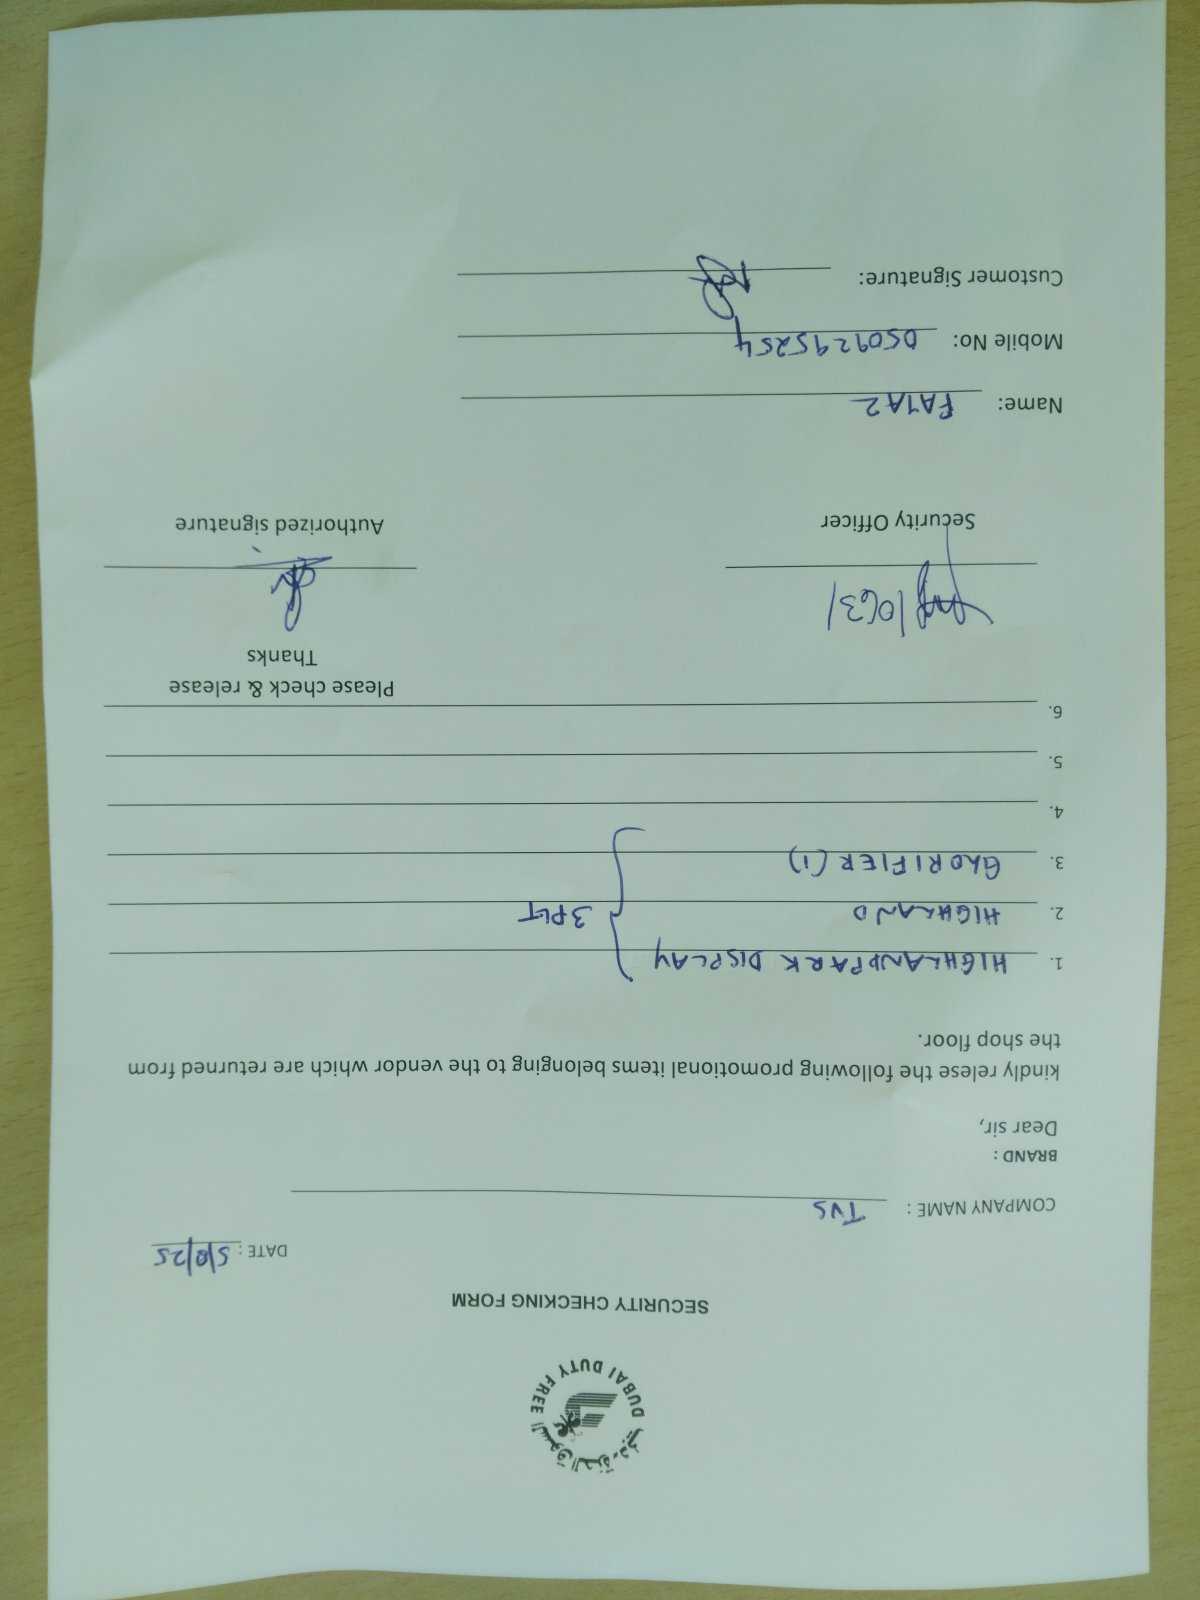 السوق الحرة - دبي
DUBAI DUTY FREE
SECURITY CHECKING FORM
DATE : 5/8/25
COMPANY NAME : TVS
BRAND :
Dear sir,
kindly relese the following promotional items belonging to the vendor which are returned from
the shop floor.
1. HIGHLANDPARK DISPLAY
2. HIGHLAND 3 PLT
3. GLORIFIER (1)
4.
5.
6.
Please check & release
Thanks
Security Officer Authorized signature
Name: FAYAZ
Mobile No: 0509295254
Customer Signature: